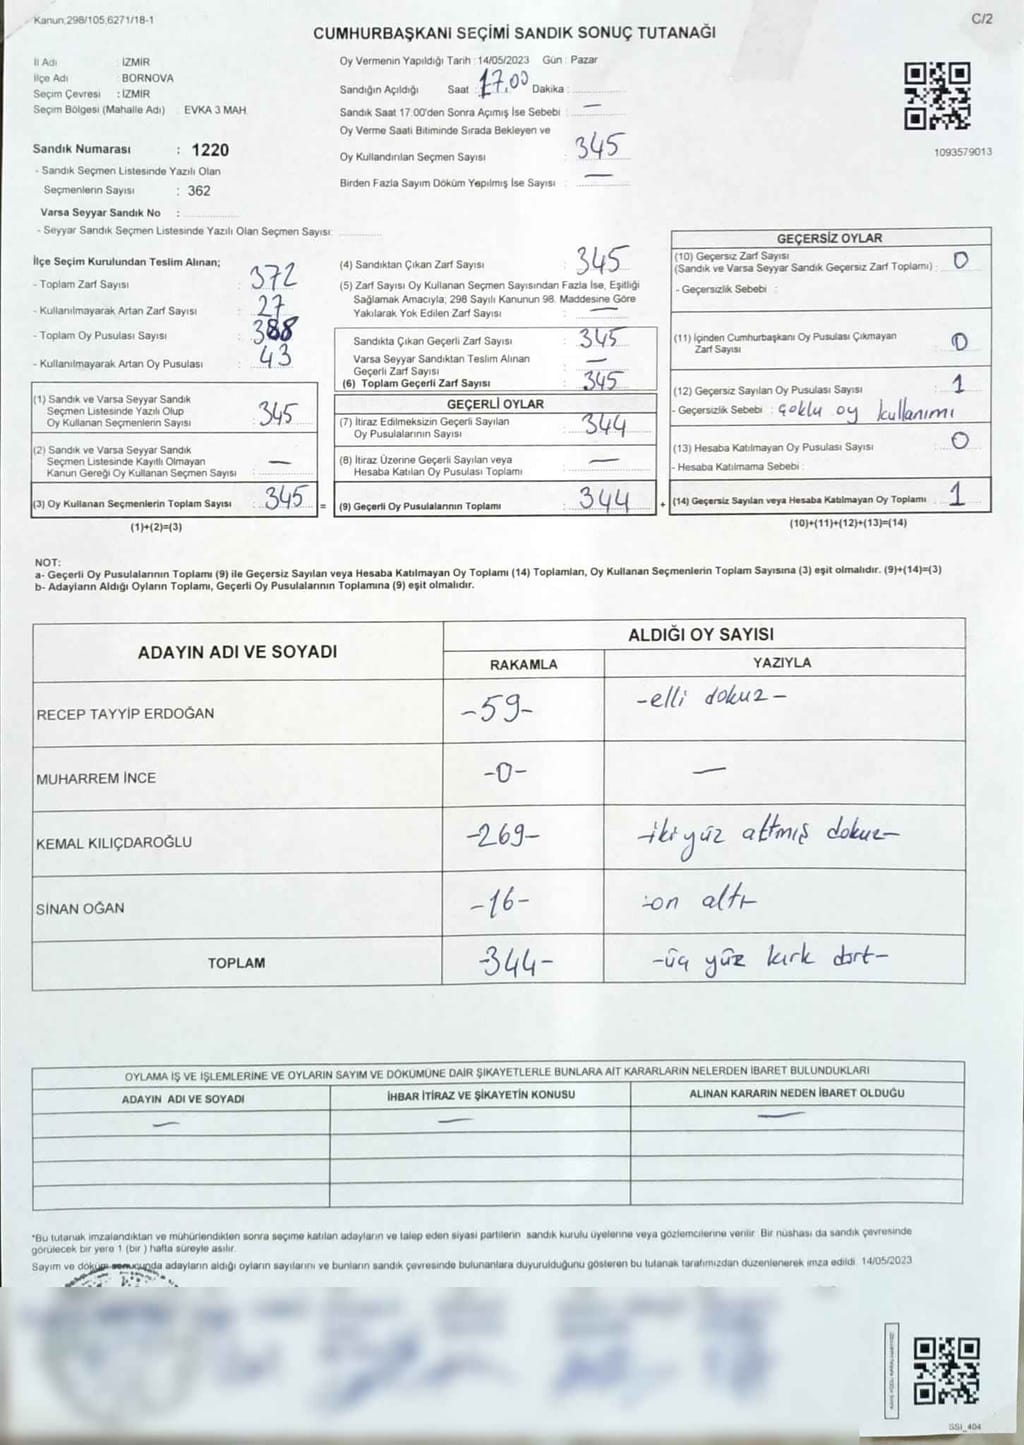 Kanun;298/105,6271/18-1
C/2
CUMHURBAŞKANI SEÇİMİ SANDIK SONUÇ TUTANAĞI
İl Adı : İZMİR
İlçe Adı : BORNOVA
Seçim Çevresi : İZMİR
Seçim Bölgesi (Mahalle Adı) : EVKA 3 MAH.
Sandık Numarası : 1220
- Sandık Seçmen Listesinde Yazılı Olan
Seçmenlerin Sayısı : 362
Varsa Seyyar Sandık No :
- Seyyar Sandık Seçmen Listesinde Yazılı Olan Seçmen Sayısı:
Oy Vermenin Yapıldığı Tarih :14/05/2023 Gün : Pazar
Sandığın Açıldığı Saat : 17.00 Dakika :
Sandık Saat 17.00'den Sonra Açımış İse Sebebi : —
Oy Verme Saati Bitiminde Sırada Bekleyen ve
Oy Kullandırılan Seçmen Sayısı : 345
Birden Fazla Sayım Döküm Yapılmış İse Sayısı : —
1093579013
İlçe Seçim Kurulundan Teslim Alınan;
- Toplam Zarf Sayısı : 372
- Kullanılmayarak Artan Zarf Sayısı : 27
- Toplam Oy Pusulası Sayısı : 388
- Kullanılmayarak Artan Oy Pusulası : 43
(1) Sandık ve Varsa Seyyar Sandık
Seçmen Listesinde Yazılı Olup
Oy Kullanan Seçmenlerin Sayısı : 345
(2) Sandık ve Varsa Seyyar Sandık
Seçmen Listesinde Kayıtlı Olmayan
Kanun Gereği Oy Kullanan Seçmen Sayısı : —
(3) Oy Kullanan Seçmenlerin Toplam Sayısı : 345
=
(1)+(2)=(3)
(4) Sandıktan Çıkan Zarf Sayısı : 345
(5) Zarf Sayısı Oy Kullanan Seçmen Sayısından Fazla İse, Eşitliği
Sağlamak Amacıyla; 298 Sayılı Kanunun 98. Maddesine Göre
Yakılarak Yok Edilen Zarf Sayısı : —
Sandıkta Çıkan Geçerli Zarf Sayısı : 345
Varsa Seyyar Sandıktan Teslim Alınan
Geçerli Zarf Sayısı : —
(6) Toplam Geçerli Zarf Sayısı : 345
GEÇERLİ OYLAR
(7) İtiraz Edilmeksizin Geçerli Sayılan
Oy Pusulalarının Sayısı : 344
(8) İtiraz Üzerine Geçerli Sayılan veya
Hesaba Katılan Oy Pusulası Toplamı : —
(9) Geçerli Oy Pusulalarının Toplamı : 344
+
GEÇERSİZ OYLAR
(10) Geçersiz Zarf Sayısı
(Sandık ve Varsa Seyyar Sandık Geçersiz Zarf Toplamı) : 0
- Geçersizlik Sebebi :
(11) İçinden Cumhurbaşkanı Oy Pusulası Çıkmayan
Zarf Sayısı : 0
(12) Geçersiz Sayılan Oy Pusulası Sayısı : 1
- Geçersizlik Sebebi : Çoklu oy kullanımı
(13) Hesaba Katılmayan Oy Pusulası Sayısı : 0
- Hesaba Katılmama Sebebi :
(14) Geçersiz Sayılan veya Hesaba Katılmayan Oy Toplamı : 1
(10)+(11)+(12)+(13)=(14)
NOT:
a- Geçerli Oy Pusulalarının Toplamı (9) ile Geçersiz Sayılan veya Hesaba Katılmayan Oy Toplamı (14) Toplamları, Oy Kullanan Seçmenlerin Toplam Sayısına (3) eşit olmalıdır. (9)+(14)=(3)
b- Adayların Aldığı Oyların Toplamı, Geçerli Oy Pusulalarının Toplamına (9) eşit olmalıdır.
ADAYIN ADI VE SOYADI ALDIĞI OY SAYISI
RAKAMLA YAZIYLA
RECEP TAYYİP ERDOĞAN -59- -elli dokuz-
MUHARREM İNCE -0- —
KEMAL KILIÇDAROĞLU -269- -iki yüz altmış dokuz-
SİNAN OĞAN -16- -on altı-
TOPLAM -344- -üç yüz kırk dört-
OYLAMA İŞ VE İŞLEMLERİNE VE OYLARIN SAYIM VE DÖKÜMÜNE DAİR ŞİKAYETLERLE BUNLARA AİT KARARLARIN NELERDEN İBARET BULUNDUKLARI
ADAYIN ADI VE SOYADI İHBAR İTİRAZ VE ŞİKAYETİN KONUSU ALINAN KARARIN NEDEN İBARET OLDUĞU
— — —
*Bu tutanak imzalandıktan ve mühürlendikten sonra seçime katılan adayların ve talep eden siyasi partilerin sandık kurulu üyelerine veya gözlemcilerine verilir. Bir nüshası da sandık çevresinde
görülecek bir yere 1 (bir ) hafta süreyle asılır.
Sayım ve döküm sonucunda adayların aldığı oyların sayılarını ve bunların sandık çevresinde bulunanlara duyurulduğunu gösteren bu tutanak tarafımızdan düzenlenerek imza edildi. 14/05/2023
SSI_404